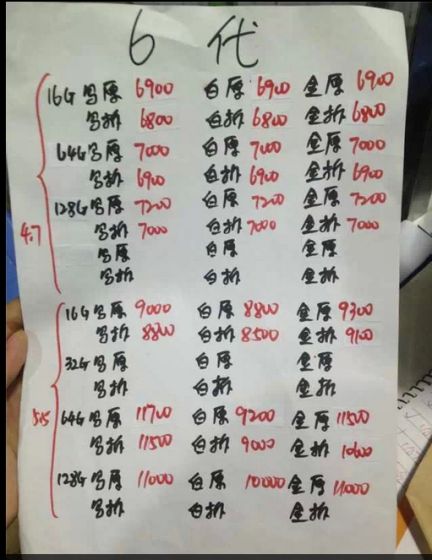 6 代
16G 黑原 6900 白原 6900 金原 6900
黑拆 6800 白拆 6800 金拆 6800
64G 黑原 7000 白原 7000 金原 7000
黑拆 6900 白拆 6900 金拆 6900
128G 黑原 7200 白原 7200 金原 7200
4.7 黑拆 7000 白拆 7000 金拆 7000
黑原 白原 金原
黑拆 白拆 金拆
16G 黑原 9000 白原 8800 金原 9300
黑拆 8800 白拆 8500 金拆 9100
32G 黑原 白原 金原
黑拆 白拆 金拆
5.5 64G 黑原 11700 白原 9200 金原 11500
黑拆 11500 白拆 9000 金拆 10600
128G 黑原 11000 白原 10000 金原 11000
黑拆 白拆 金拆